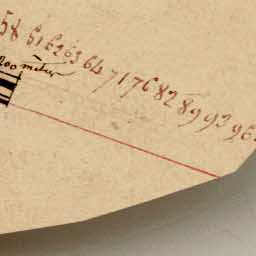 58 61 62 63 64 71 76 82 89 93 96
200 mètres